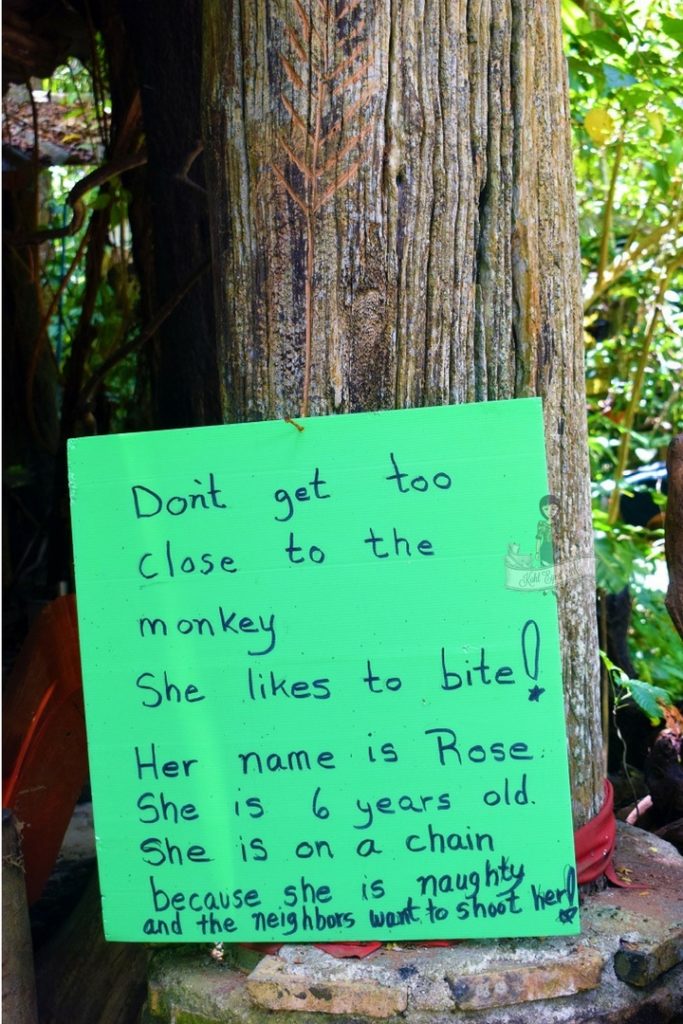 Don't get too
close to the
monkey
She likes to bite!
Her name is Rose.
She is 6 years old.
She is on a chain
because she is naughty
and the neighbors want to shoot her!